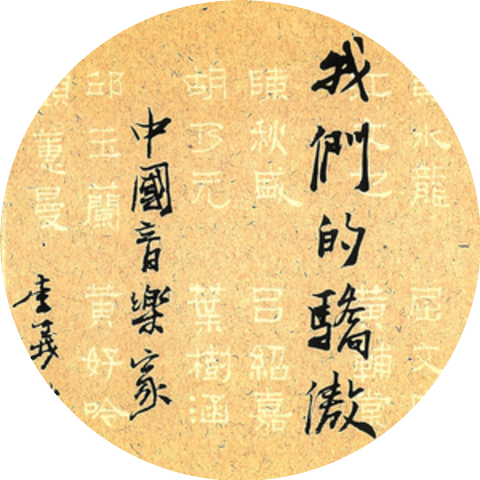 我們的驕傲
中國音樂家
水龍
屈文
黃輔棠
陳秋盛
呂紹嘉
胡乃元
葉樹涵
邱玉蘭
黃好吟
蕙曼